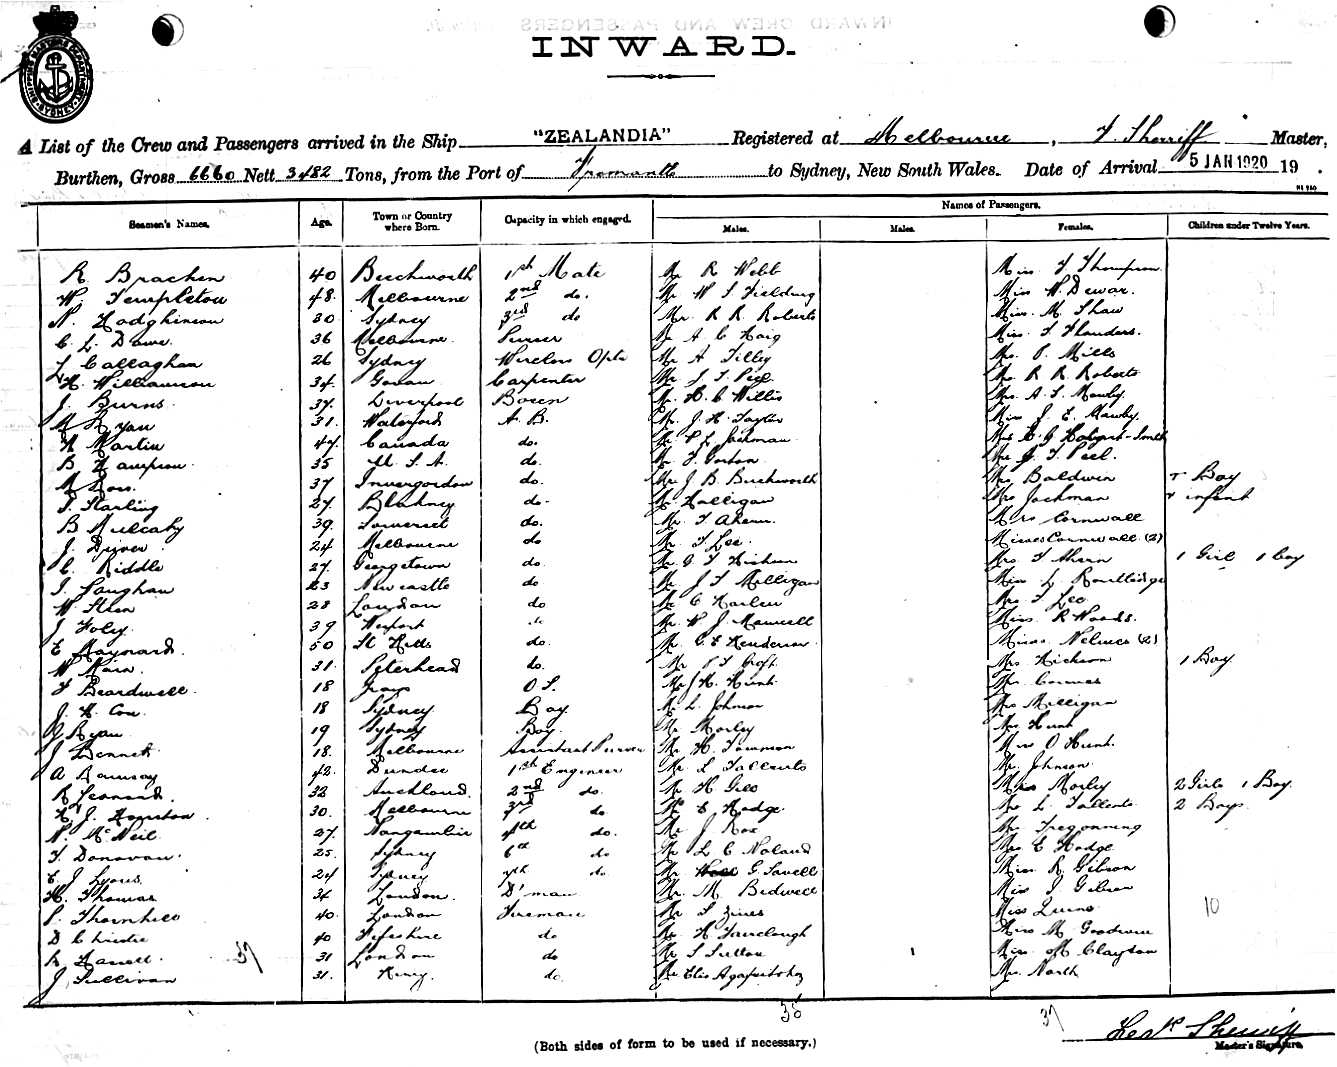 INWARD.
A List of the Crew and Passengers arrived in the Ship "ZEALANDIA" Registered at Melbourne, Master,
Burthen, Gross 6660 Nett 3482 Tons, from the Port of Fremantle to Sydney, New South Wales. Date of Arrival 5 JAN 1920 19 .
Names of Passengers.
Seamen's Names. Age. Town or Country where Born. Capacity in which engaged. Males. Males. Females. Children under Twelve Years.
R Bracken 40 Beechworth 1st Mate Mr R Webb Miss F Thompson
W. Templeton 48. Melbourne 2nd do. Mr W S Fielding Miss W Dewar.
N. Hodghinson 30 Sydney 3rd do Mr R R Roberts Miss M Shaw
C. L. Dawe. 36 Melbourne. Purser Mr A C Haig Miss F Flanders.
Callaghan 26 Sydney Wireless Optr Mr A Tilley Mrs P. Mills
H. Williamson 34. Carpenter Mr J T Peel Mrs R R Roberts
J. Burns. 37. Liverpool Bosen Mr H C Willis Mrs A S
M Ryan 31. Waterford A. B. Mr. J H Taylor Miss J E Mawby.
Martin 47. Canada do. Mr P L Jackman Mrs Holyart-Smith
B Hampson 35 U. S. A. do. Mr F Gordon Mrs J T Peel.
M Ross. 37 Invergordon do. Mr J B Beechworth Mrs Baldwin + Boy
Starling 27. Blakney do. Mr Halligan Mrs Jackman + infant
B Mulcahy 39. Somerset do. Mr T Ahern. Mrs Cornwall
J. Driver 24 Melbourne do Mr T Lee. Misses Cornwall (2)
Riddle 27. Georgetown do. Mr Mrs T Ahern 1 Girl 1 boy
Vaughan 23 Newcastle do Mr J T Milligan Miss L Routlidge
W Steen 28 London do Mr C Harlen Mrs T Lee
J Foley. 39 Mr W J Maxwell Miss. R Woods.
E Maynard. 50 St Kitts do. Mr C E Henderson Misses Nelmes (2)
W Main. 31. Peterhead do. Mr P T Croft Mrs Hickson 1 Boy
F Beardwell. 18 Grays O S. Mr J H. Hunt Mrs
J. H. Cox. 18 Sydney Boy Mr L. Johnson Mrs Milligan
Ryan 19 Sydney Boy. Mr Morley Mrs Hunt
J Bennett 18. Melbourne Assistant Purser Mr H. Townson Mrs O Hunt.
A Ramsay 42. Dundee 1st Engineer Mr L Tallents Mrs Johnson
R Leonard. 32 Auckland. 2nd do. Mr H Giles Mrs Morley 2 Girls 1 Boy.
H. J. Houston. 30. Melbourne 3rd do Mr E Hodge. Mrs L. Tallents 2 Boys
N. McNeil. 27. 4th do. Mr J Mrs Tregonning
Donovan. 25. Sydney 6th do Mr L C Noland Mrs E Hodge
E J Lyons. 24 Sydney 7th do Mr G. Savell Miss R Gibson
H. Thomas 34 London. D'man Mr. M Bidwell Miss J Gibson
Thornhill 40. London Fireman Mr S Zines Miss Quinn 10
D Christie 40 Fifeshire do Mr H Fairclough Miss M Goodwin
Hassett 37 31 London do Mr S Sutton 1 Miss M Clayton
J Sullivan 31. Kerry. do. Mr Elis Mrs North
36 37
(Both sides of form to be used if necessary.)
Master's Signature.